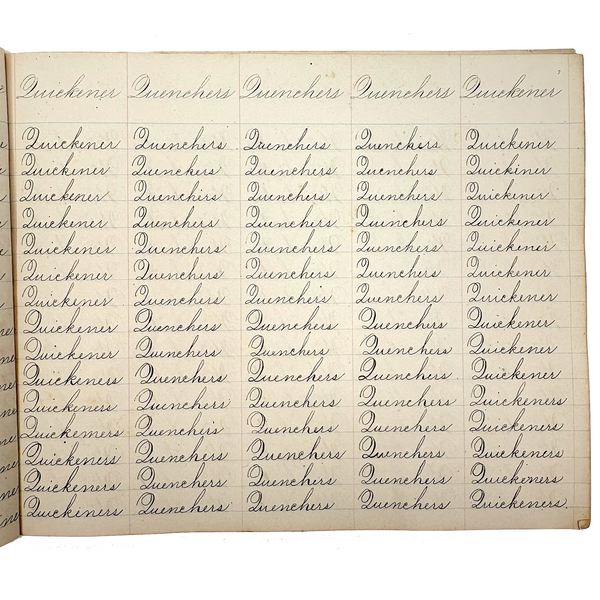 Quickener Quenchers Quenchers Quenchers Quickener
Quickener Quenchers Quenchers Quenchers Quickener
Quickener Quenchers Quenchers Quenchers Quickiner
Quickener Quenchers Quenchers Quenchers Quickener
Quickener Quenchers Quenchers Quenchers Quickener
Quickener Quenchers Quenchers Quenchers Quickener
Quickener Quenchers Quenchers Quenchers Quickener
Quickener Quenchers Quenchers Quenchers Quickener
Quickener Quenchers Quenchers Quenchers Quickener
Quickener Quenchers Quenchers Quenchers Quickener
Quickeners Quenchers Quenchers Quenchers Quickener
Quickeners Quenchers Quenchers Quenchers Quickeners
Quickeners Quenchers Quenchers Quenchers Quickeners
Quickeners Quenchers Quenchers Quenchers Quickeners
Quickeners Quenchers Quenchers Quenchers Quickeners
Quickiners Quenchers Quenchers Quenchers Quickeners.